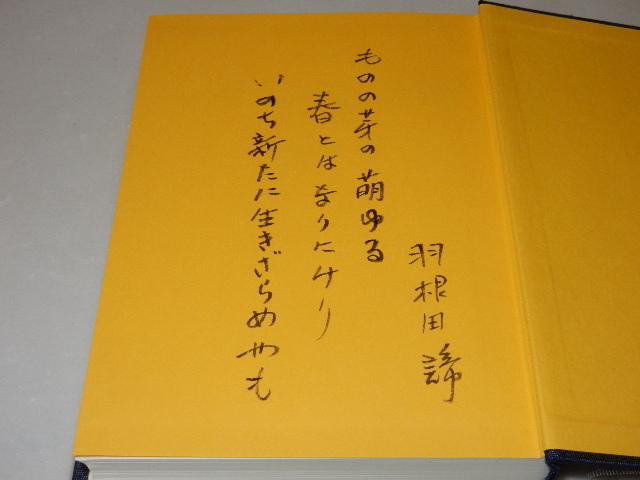 羽根田諦
ものの芽の萌ゆる
春とはなりにけり
いのち新たに生きざらめやも